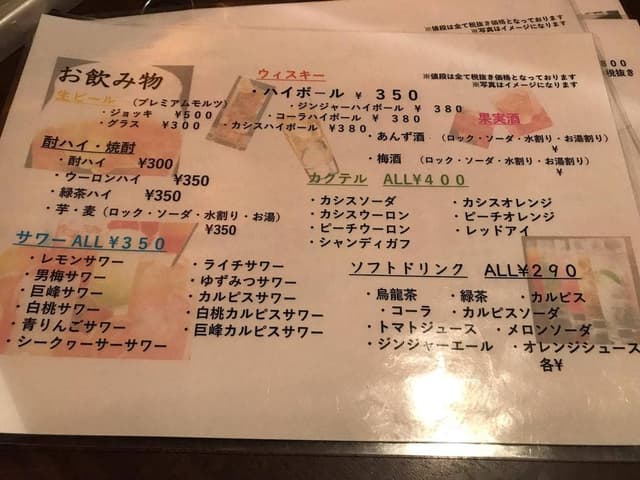 ※値段は全て税抜き価格となっております
※写真はイメージになります
お飲み物
生ビール (プレミアムモルツ)
・ジョッキ ¥500
・グラス ¥300
酎ハイ・焼酎
・酎ハイ ¥300
・ウーロンハイ ¥350
・緑茶ハイ ¥350
・芋・麦(ロック・ソーダ・水割り・お湯)
¥350
サワーALL¥350
・レモンサワー
・男梅サワー
・巨峰サワー
・白桃サワー
・青りんごサワー
・シークヮーサーサワー
・ライチサワー
・ゆずみつサワー
・カルピスサワー
・白桃カルピスサワー
・巨峰カルピスサワー
ウィスキー
・ハイボール ¥ 350
・ジンジャーハイボール ¥ 380
・コーラハイボール ¥ 380
・カシスハイボール ¥380
※値段は全て税抜き価格となっております
※写真はイメージになります
果実酒
・あんず酒 (ロック・ソーダ・水割り・お湯割り)
¥
・梅酒 (ロック・ソーダ・水割り・お湯割り)
¥
カクテル ALL¥400
・カシスソーダ
・カシスウーロン
・ピーチウーロン
・シャンディガフ
・カシスオレンジ
・ピーチオレンジ
・レッドアイ
ソフトドリンク ALL¥290
・烏龍茶 ・緑茶 ・カルピス
・コーラ ・カルピスソーダ
・トマトジュース ・メロンソーダ
・ジンジャーエール ・オレンジジュース
各¥